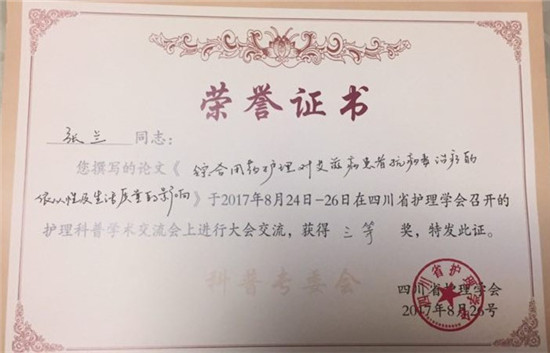 荣誉证书
张兰 同志:
您撰写的论文《综合用药护理对艾滋病患者抗病毒治疗的
依从性及生活质量的影响》于2017年8月24日-26日在四川省护理学会召开的
护理科普学术交流会上进行大会交流,获得 三等 奖,特发此证。
科普专委会
四川省护理学会
2017年8月26号
四川省护理学会